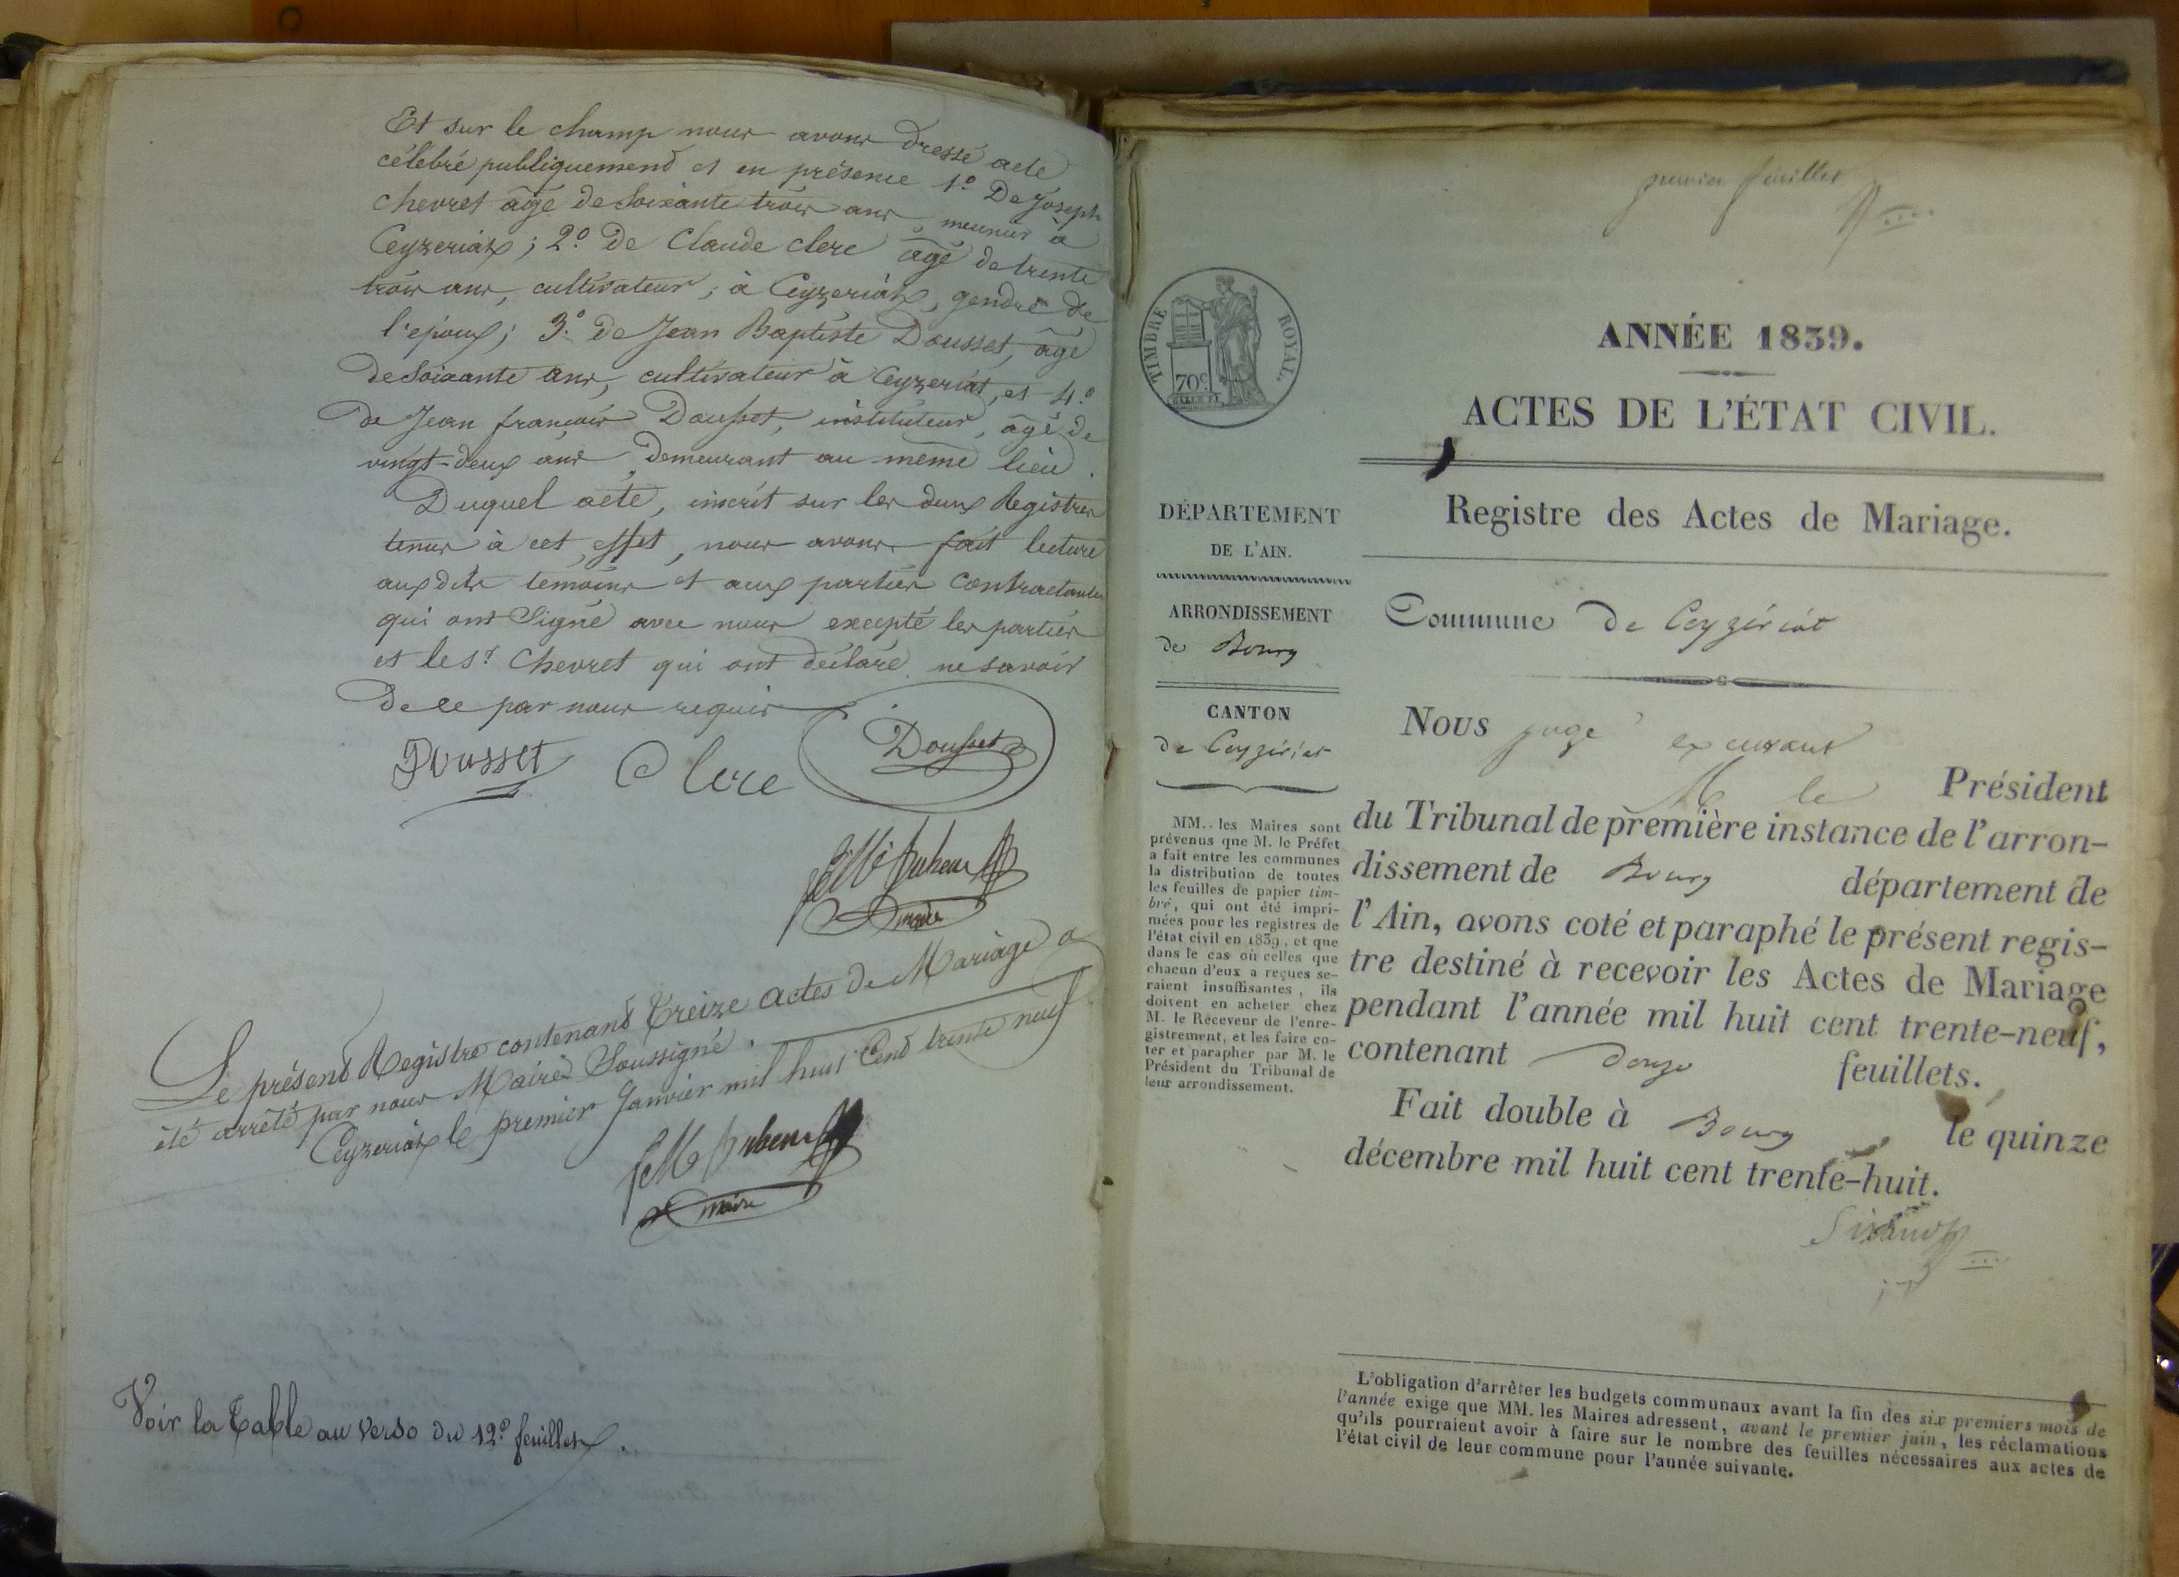 Et sur le champ nous avons dressé acte
célébré publiquement et en présence 1.º De Joseph
chevret âgé de soixante trois ans, meunier à
Ceyzeriat ; 2.º De Claude clerc âgé de trente
trois ans, cultivateur, à Ceyzeriat, gendre de
l'epoux ; 3.º de Jean Baptiste Dousset, âgé
de soixante ans, cultivateur à Ceyzeriat, et 4.º
de Jean françois Dousset, instituteur, âgé de
vingt-deux ans, demeurant au même lieu.
Duquel acte, inscrit sur les deux Registres
tenus à cet effet, nous avons fait lecture
aux dits témoins et aux parties contractantes
qui ont signé avec nous excepté les parties
et le s.r Chevret qui ont déclaré ne savoir
de ce par nous requis
Dousset Clerc Dousset
maire
Le présent Registre contenant Treize actes de Mariage a
été arrêté par nous Maire Soussigné.
Ceyzeriat le premier Janvier mil huit Cent trente neuf
maire
Voir la Table au verso du 12.e feuillet.
premier feuillet
TIMBRE ROYAL.
70c
ANNÉE 1839.
ACTES DE L'ÉTAT CIVIL.
Registre des Actes de Mariage.
DÉPARTEMENT
DE L'AIN.
ARRONDISSEMENT
de Bourg
CANTON
de Ceyzériat
MM. les Maires sont
prévenus que M. le Préfet
a fait entre les communes
la distribution de toutes
les feuilles de papier tim-
bré, qui ont été impri-
mées pour les registres de
l'état civil en 1839, et que
dans le cas où celles que
chacun d'eux a reçues se-
raient insuffisantes, ils
doivent en acheter chez
M. le Receveur de l'enre-
gistrement, et les faire co-
ter et parapher par M. le
Président du Tribunal de
leur arrondissement.
Commune de Ceyzériat
Nous juge excusant
M le Président
du Tribunal de première instance de l'arron-
dissement de Bourg département de
l'Ain, avons coté et paraphé le présent regis-
tre destiné à recevoir les Actes de Mariage
pendant l'année mil huit cent trente-neuf,
contenant douze feuillets.
Fait double à Bourg, le quinze
décembre mil huit cent trente-huit.
L'obligation d'arrêter les budgets communaux avant la fin des six premiers mois de
l'année exige que MM. les Maires adressent, avant le premier juin, les réclamations
qu'ils pourraient avoir à faire sur le nombre des feuilles nécessaires aux actes de
l'état civil de leur commune pour l'année suivante.